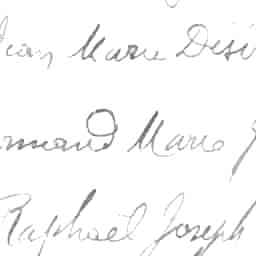 Jean Marie Dési
rmand Marie J
Raphaël Joseph